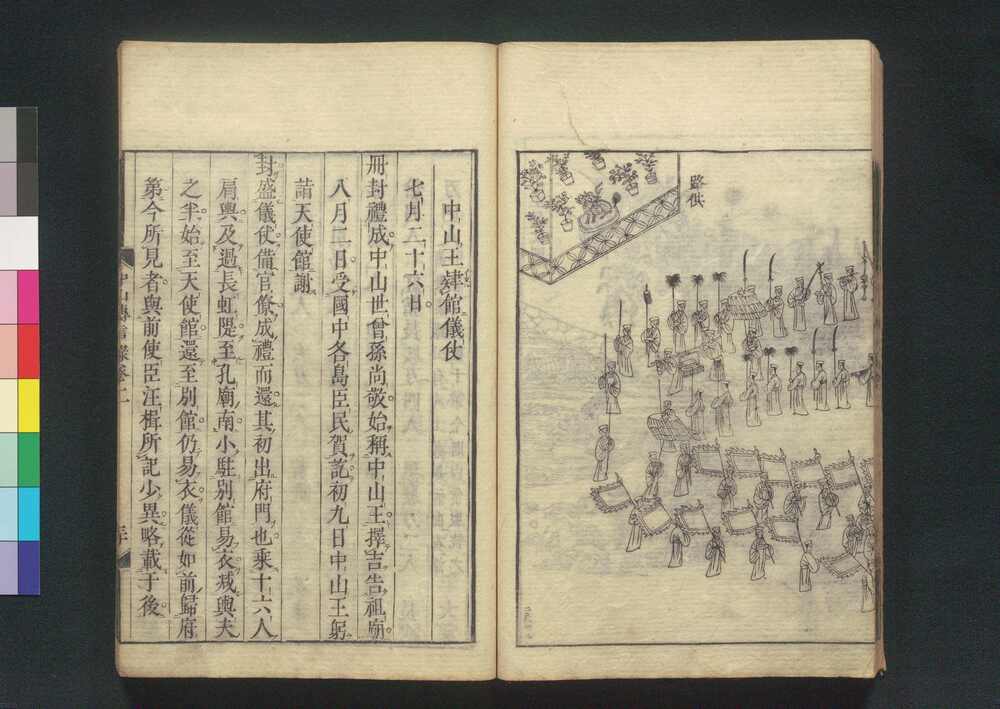 路供
中山王肄館儀仗
七月二十六日
冊封禮成中山世曾孫尚敬始稱中山王擇吉告祖廟
八月二日受國中各島臣民賀訖初九日中山王躬
詣天使館謝
封盛儀仗備官僚成禮而還其初出府門也乘十六人
肩輿及過長虹隄至孔廟南小駐別館易衣减輿夫
之半始至天使館還至別館仍易衣儀從如前歸府
第今所見者與前使臣汪楫所記少異略載于後
中山傳信錄卷二